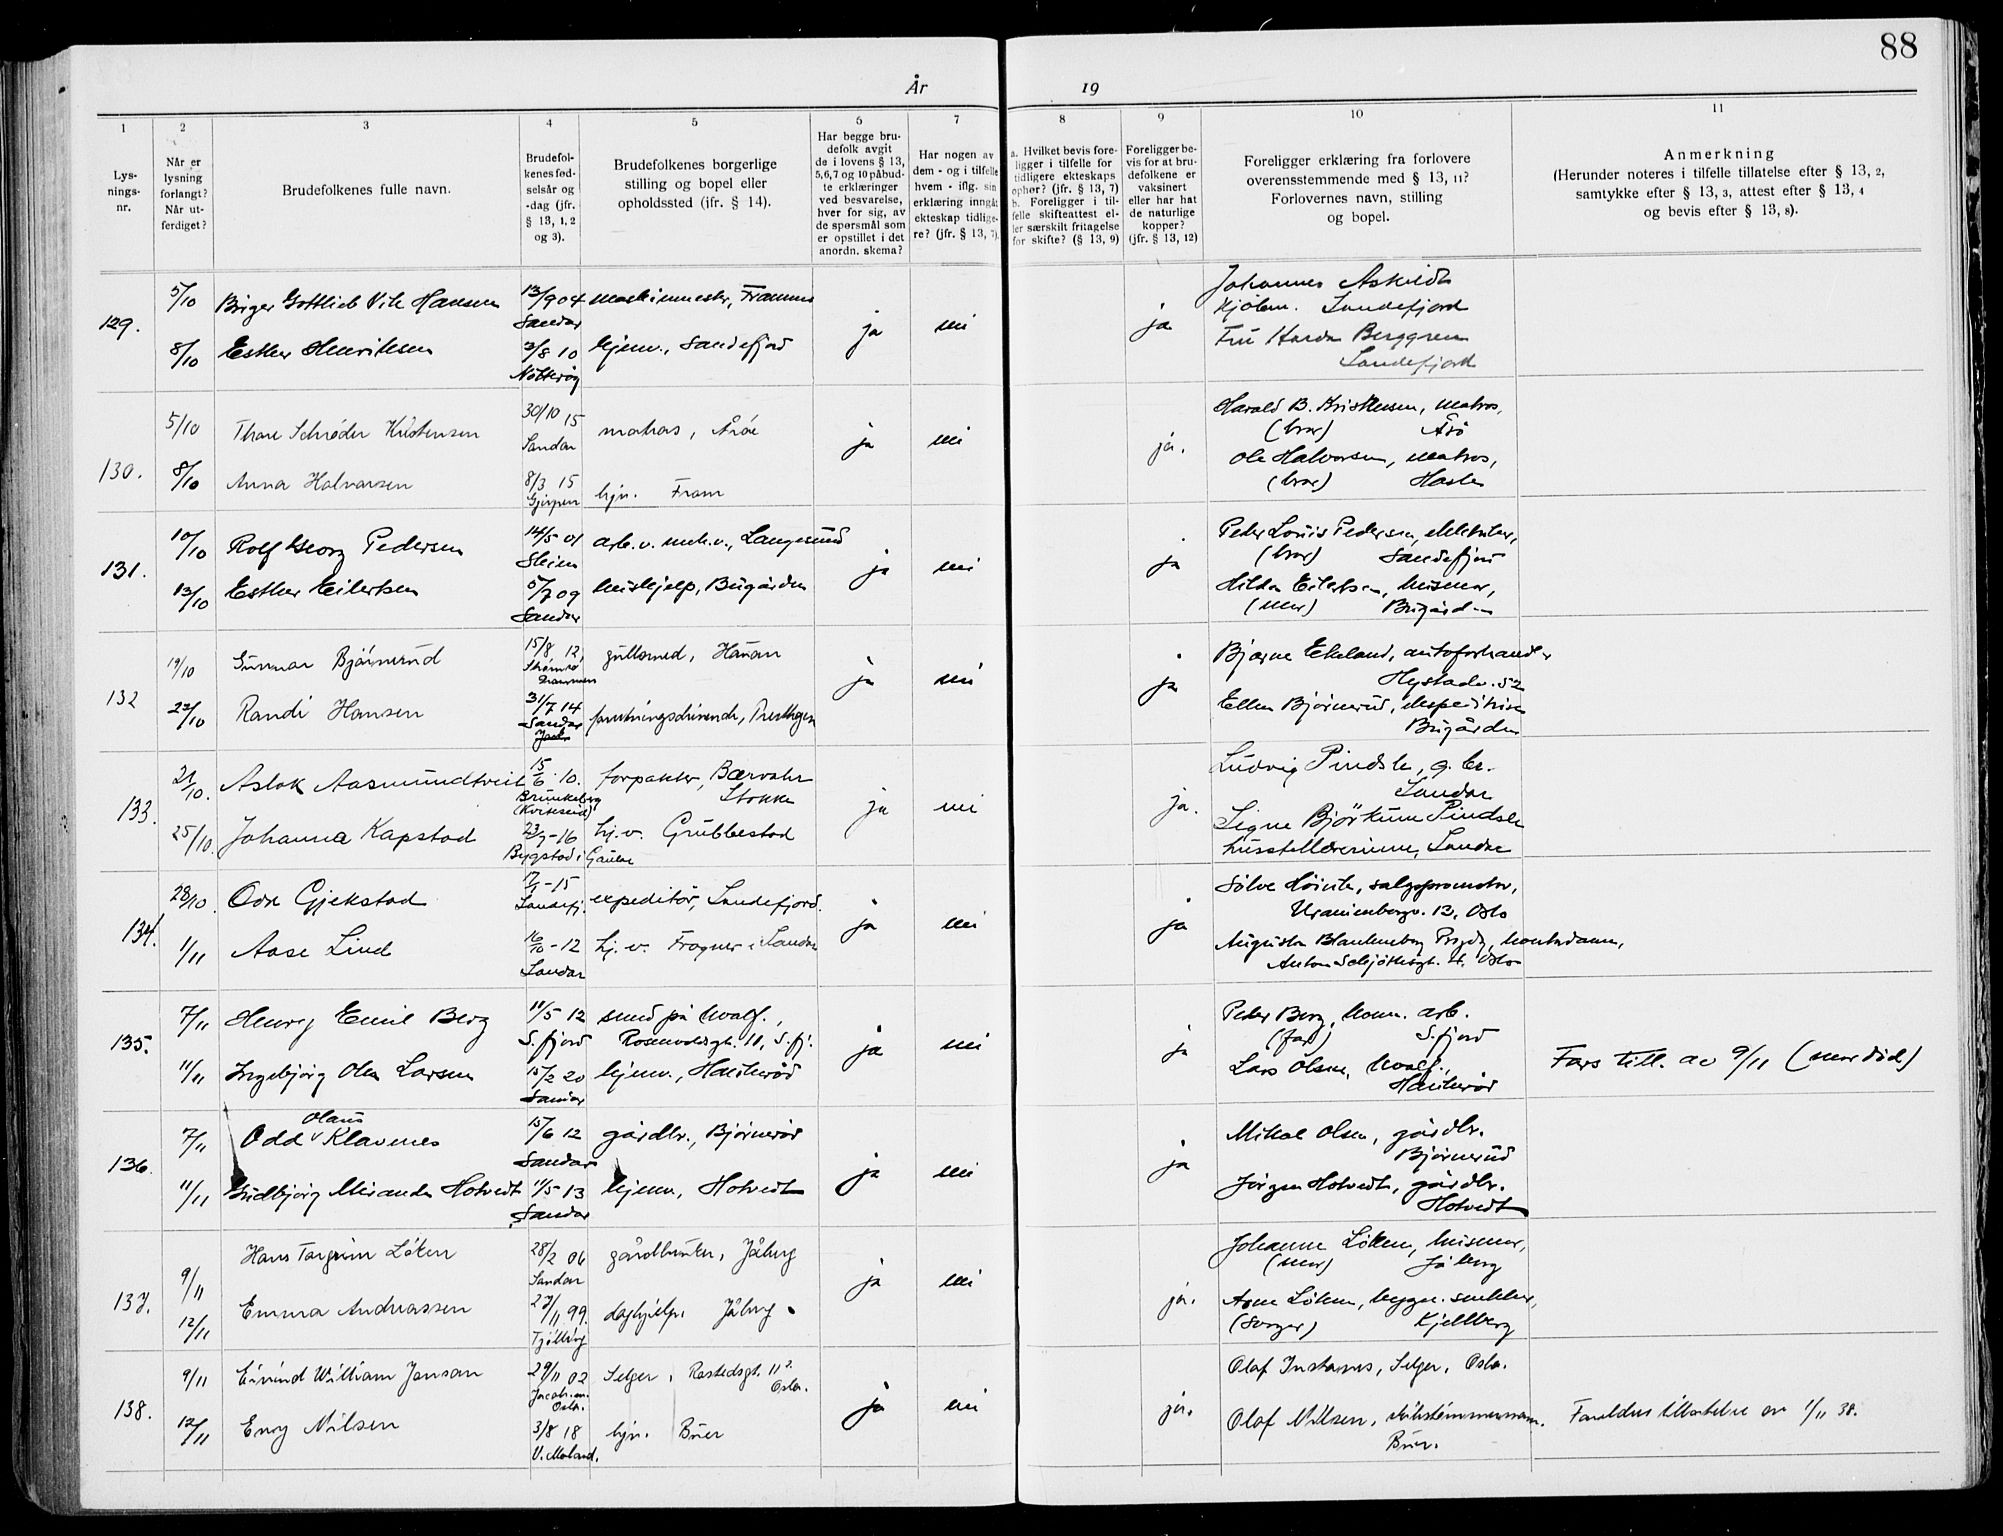 88
År 19
1 2 3 4 5 6 7 8 9 10 11
Lys-
nings-
nr.
Når er
lysning
forlangt?
Når ut-
ferdiget?
Brudefolkenes fulle navn.
Brudefol-
kenes fød-
selsår og
-dag (jfr.
§ 13, 1, 2
og 3).
Brudefolkenes borgerlige
stilling og bopel eller
opholdssted (jfr. § 14).
Har begge bru-
defolk avgit
de i lovens § 13,
5,6,7 og 10 påbud-
te erklæringer
ved besvarelse,
hver for sig, av
de spørsmål som
er opstillet i det
anordn. skema?
Har nogen av
dem - og i tilfelle
hvem - iflg. sin
erklæring inngåt
ekteskap tidlige-
re? (jfr. § 13, 7).
a. Hvilket bevis fore-
ligger i tilfelle for
tidligere ekteskaps
ophør? (jfr. § 13, 7)
b. Foreligger i til-
felle skifteattest el-
ler særskilt fritagelse
for skifte? (§ 13, 9)
Foreligger be-
vis for at bru-
defolkene er
vaksinert
eller har hat
de naturlige
kopper?
(jfr. § 13, 12)
Foreligger erklæring fra forlovere
overensstemmende med § 13, 11?
Forlovernes navn, stilling
og bopel.
Anmerkning
(Herunder noteres i tilfelle tillatelse efter § 13, 2,
samtykke efter § 13, 3, attest efter § 13, 4
og bevis efter § 13, 8).
129.
5/10 Birger Gottlieb Hansen 13/9 04 Framnes
Sandar
8/10 Esther Henriksen 3/8 10 hjemv., Sandefjord
Nøtterøy
ja nei ja
Johannes Askvidt
Sandefjord
Fru Berggren
Sandefjord
130.
5/10 Thore Schrøder Kristensen 30/10 15 matros, Årøe
Sandar
8/10 Anna Halvorsen 8/3 15 hjv. Fram
Gjerpen
ja nei ja.
Harald B. Kristensen, matros,
(bror) Årø
Ole Halvorsen, matros,
(bror) Hasle
131.
10/10 Rolf Georg Pedersen 14/5 01 arb. v. mek.v., Langesund
Skien
13/10 Esther Eilertsen 5/7 09 hushjelp, Bugården
Sandar
ja nei ja
Peder Louis Pedersen,
(bror) Sandefjord
Hilda Eilertsen, husmor,
(mor) Bugården
132
19/10 Gunnar Bjørnerud 15/8 12 gullsmed, Hauan
Strømsø
Drammen
22/10 Randi Hansen 31/7 14 forretningsdrivende,
Sandar
ja nei ja
Bjarne Ekeland, autoforhandler
Hystadv. 52
Ellen Bjørnerud,
Bugården
133.
21/10. Aslak Aasmundtveit 15/6 10. forpakter,
Brunkeberg Stokke
(Kviteseid)
25/10. Johanna Kapstad 23/7 - 16 hj.v. Grubbestad
Bygstad i Gaular
ja nei ja.
Ludvig Pindsle, g.br.
Sandar
Signe Bjørkum Pindsle
husstellærerinne, Sandar
134.
28/10. Odd Gjekstad - 15 expeditør, Sandefjord.
Sandefj.
1/11 Aase Lind 16/10 - 12 hj.v. Fragner i Sandar
Sandar
ja nei ja
Sølve
Uranienborgv. 13, Oslo
Augusta
Anton Schjøthsgt. Oslo
135.
7/11 Henry Emil Berg 11/5 12 smed på hvalf.,
S.fjord Rosenvoldsgt. 11, S.fj.
11/11 Ingebjørg Olea Larsen 15/2 20 hjemv., Haukerød
Sandar
ja nei ja
Peder Berg, komm. arb.
(far) S.fjord
Lars Olsen, hvalf.,
Haukerød
Fars till. av 9/11 (mor død)
136.
Olaus
7/11 Odd v Klavenes 15/6 12 gårdbr., Bjørnerød
Sandar
11/11 Gudbjørg Miranda Hotvedt 11/5 13 hjemv, Hotvedt
Sandar
ja nei ja
Mikal Olsen, gårdbr.
Bjørnerud
Jørgen Hotvedt, gårdbr.
Hotvedt
137.
9/11 Hans Torgrim Løken 28/2 06 gårdbruker, Jåberg
Sandar
12/11 Emma Andreassen 27/11 99. daghjelp. Jåberg
Tjølling
ja nei ja.
Johanne Løken, husmor,
(mor) Jåberg
Arne Løken, bygn. snekker,
(svoger) Kjellberg
138.
9/11 Eivind William Jansan 29/11 02 Selger, Rostedsgt. 11²
Oslo. Oslo.
12/11 Eny Nilsen 3/8 18 hjv. Buer
V. Moland.
ja nei ja.
Olaf Instanes, Selger, Oslo.
Olaf Nilsen, skibstømmermann.
Buer.
Foreldres tillatelse av 1/11 38.